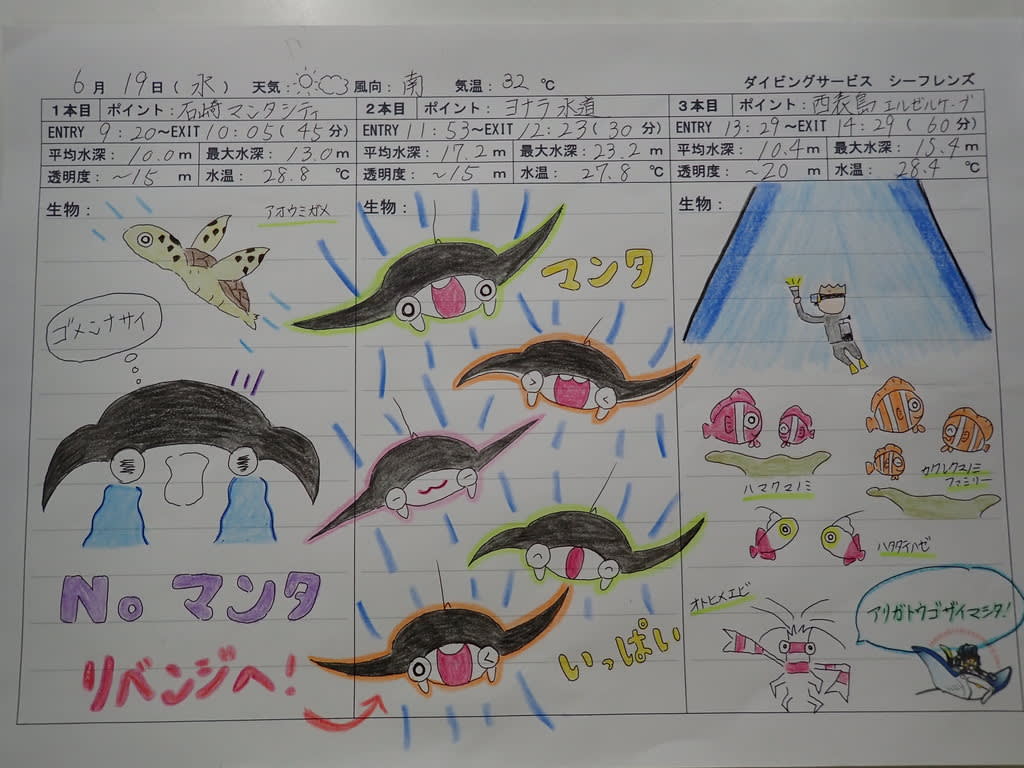 6月 19日(水) 天気: 風向:南 気温:32℃ ダイビングサービス シーフレンズ
1本目 ポイント:石崎マンタシティ
ENTRY 9:20~EXIT 10:05(45分)
平均水深:10.0m 最大水深:13.0m
透明度:~15m 水温:28.8℃
生物:
アオウミガメ
ゴメンナサイ
No マンタ
リベンジへ!
2本目 ポイント:ヨナラ水道
ENTRY 11:53~EXIT 12:23(30分)
平均水深:17.2m 最大水深:23.2m
透明度:~15m 水温:27.8℃
生物:
マンタ
いっぱい
3本目 ポイント:西表島エルゼルケーブ
ENTRY 13:29~EXIT 14:29(60分)
平均水深:10.4m 最大水深:15.4m
透明度:~20m 水温:28.4℃
生物:
ハマクマノミ
カクレクマノミ
ファミリー
ハタタテハゼ
オトヒメエビ
アリガトウゴザイマシタ!